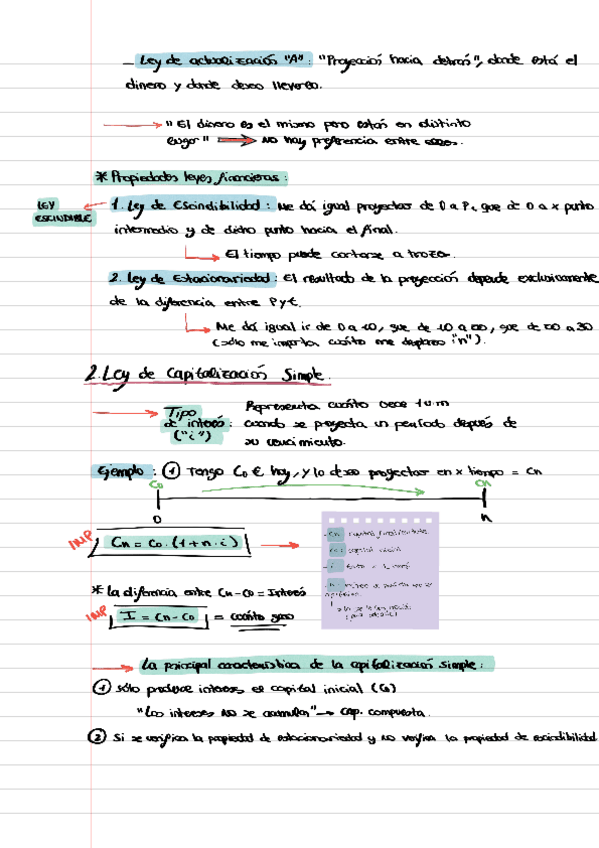 - Ley de actualización "A": "Proyección hacia detrás", donde está el
dinero y donde deseo llevarlo.
"El dinero es el mismo pero están en distinto
lugar" → NO hay preferencia entre ellos.
* Propiedades leyes financieras:
LEY
ESCINDIBLE
1. Ley de Escindibilidad: Me da igual proyectar de 0 a P, que de 0 a x punto
intermedio y de dicho punto hacia el final.
El tiempo puede cortarse a trozos.
2. Ley de Estacionariedad: El resultado de la proyección depende exclusivamente
de la diferencia entre P y t.
Me da igual ir de 0 a 10, que de 10 a 20, que de 20 a 30
(sólo me importa cuánto me desplazo "n").
2. Ley de Capitalización Simple.
Tipo
de interés:
("i")
Representa cuánto crece 1 u.m
cuando se proyecta un período después de
su vencimiento.
Ejemplo: ① Tengo Co € hoy, y lo deseo proyectar en x tiempo = Cn
Co
Cn
0
n
IMP
Cn = Co · (1 + n · i)
Cn:
Co: capital inicial
i:
n:
* La diferencia entre Cn - Co = Interés
IMP
I = Cn - Co = cuánto gano
La principal característica de la capitalización simple:
① Sólo produce intereses el capital inicial (Co)
"Los intereses NO se acumulan" → Cap. compuesta.
② Si se verifica la propiedad de estacionariedad y no verifica la propiedad de escindibilidad